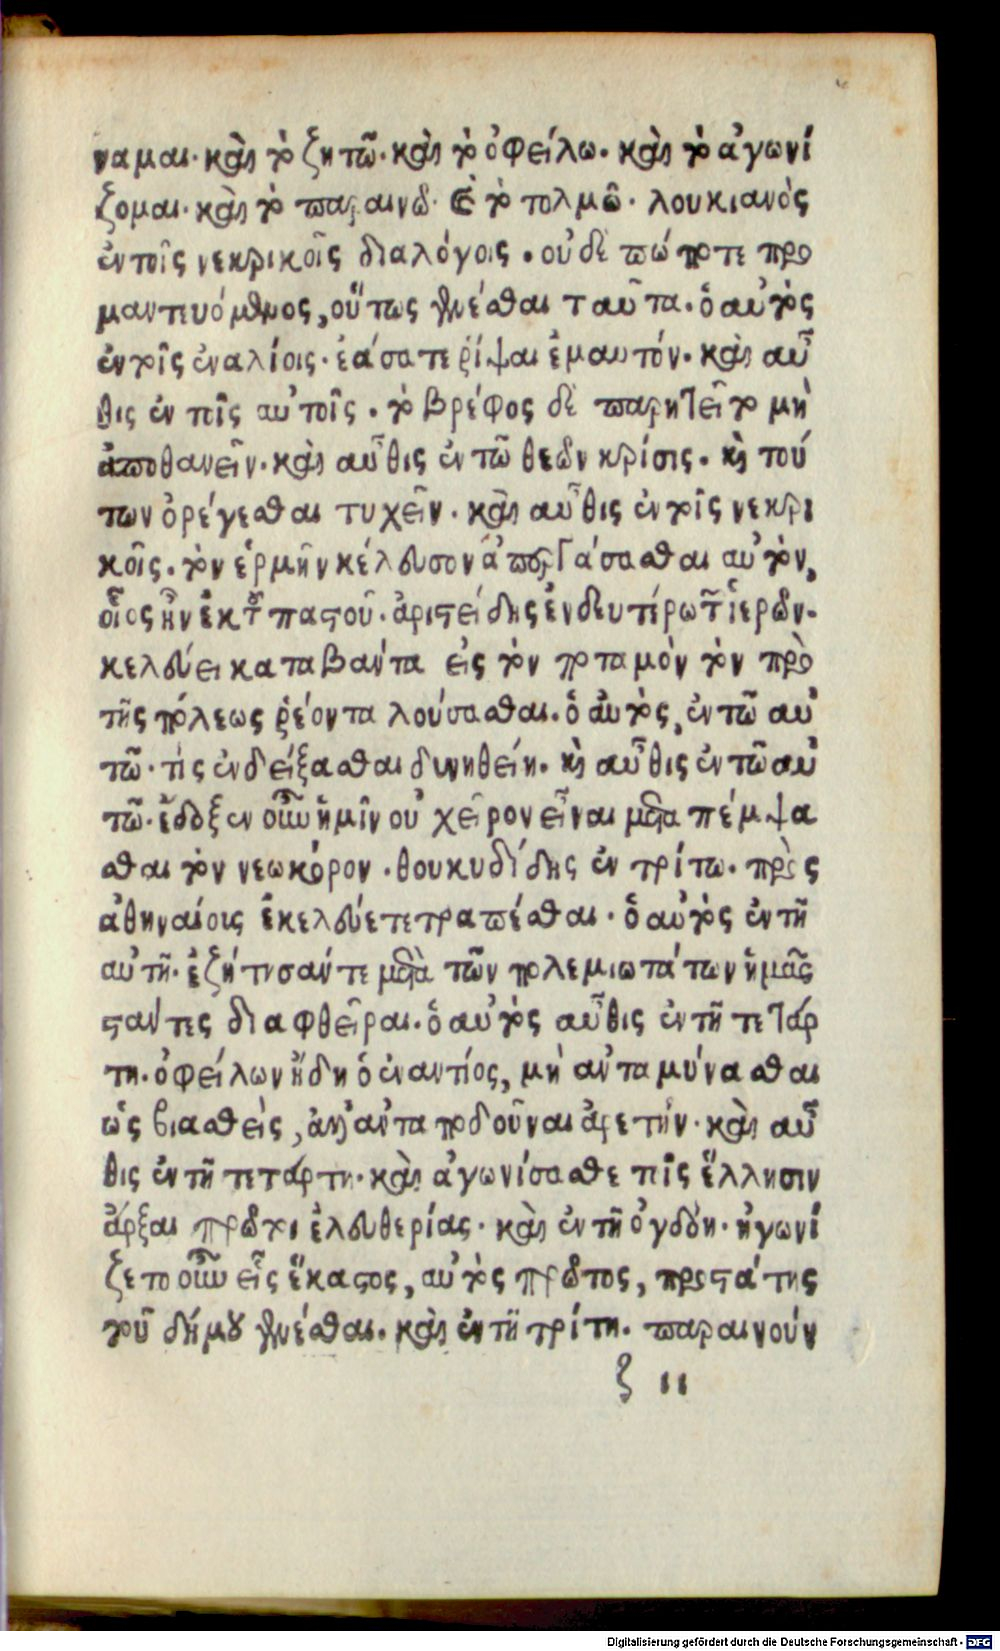 ναμαι· καὶ τὸ ζητῶ· καὶ τὸ ὀφείλω· καὶ τὸ ἀγωνί
ζομαι· καὶ τὸ παραινῶ· καὶ τὸ τολμῶ· λουκιανὸς
ἐν τοῖς νεκρικοῖς διαλόγοις · οὐδὲ πώποτε προ
μαντευόμενος, οὕτως γενέσθαι ταῦτα· ὁ αὐτὸς
ἐν τοῖς ἐναλίοις· ἐάσατε ῥίψαι ἐμαυτόν· καὶ αὖ
θις ἐν τοῖς αὐτοῖς · τὸ βρέφος δὲ παρητεῖτο μὴ
ἀποθανεῖν· καὶ αὖθις ἐν τῶ θεῶν κρίσις· καὶ τού
των ὀρέγεσθαι τυχεῖν· καὶ αὖθις ἐν τοῖς νεκρι
κοῖς· τὸν ἑρμῆν κέλευσον ἀπεργάσασθαι αὐτὸν,
οἷος ἦν ἐκ τοῦ παστοῦ· ἀριστείδης ἐν δευτέρω τῶν ἱερῶν·
κελεύει καταβάντα εἰς τὸν ποταμὸν τὸν πρὸ
τῆς πόλεως ῥέοντα λούσασθαι· ὁ αὐτὸς, ἐν τῶ αὐ
τῶ· τίς ἐνδείξασθαι δυνηθείη· καὶ αὖθις ἐν τῶ αὐ
τῶ· ἔδοξεν οὖν ἡμῖν οὐ χεῖρον εἶναι μετὰ πέμψα
σθαι τὸν νεωκόρον · θουκυδίδης ἐν τρίτω· πρὸς
ἀθηναίοις ἐκελεύετε τραπέσθαι· ὁ αὐτὸς ἐν τῆ
αὐτῆ· ἐζήτησάν τε μετὰ τῶν πολεμιωτάτων ἡμᾶς
στάντες διαφθεῖραι· ὁ αὐτὸς αὖθις ἐν τῆ τετάρ
τη· ὀφείλων ἤδη ὁ ἐναντίος, μὴ ἀνταμύνασθαι
ὡς βιασθεὶς, ἀλλ' ἀνταποδοῦναι ἀρετήν· καὶ αὖ
θις ἐν τῆ τετάρτη· καὶ ἀγωνίσασθε τοῖς ἕλλησιν
ἄρξαι πρῶτοι ἐλευθερίας· καὶ ἐν τῆ ὀγδόη· ἠγωνί
ζετο οὖν εἷς ἕκαστος, αὐτὸς πρῶτος, προστάτης
τοῦ δήμου γενέσθαι· καὶ ἐν τῆ τρίτη· παραινούν
ζ ιι
Digitalisierung gefördert durch die Deutsche Forschungsgemeinschaft - DFG